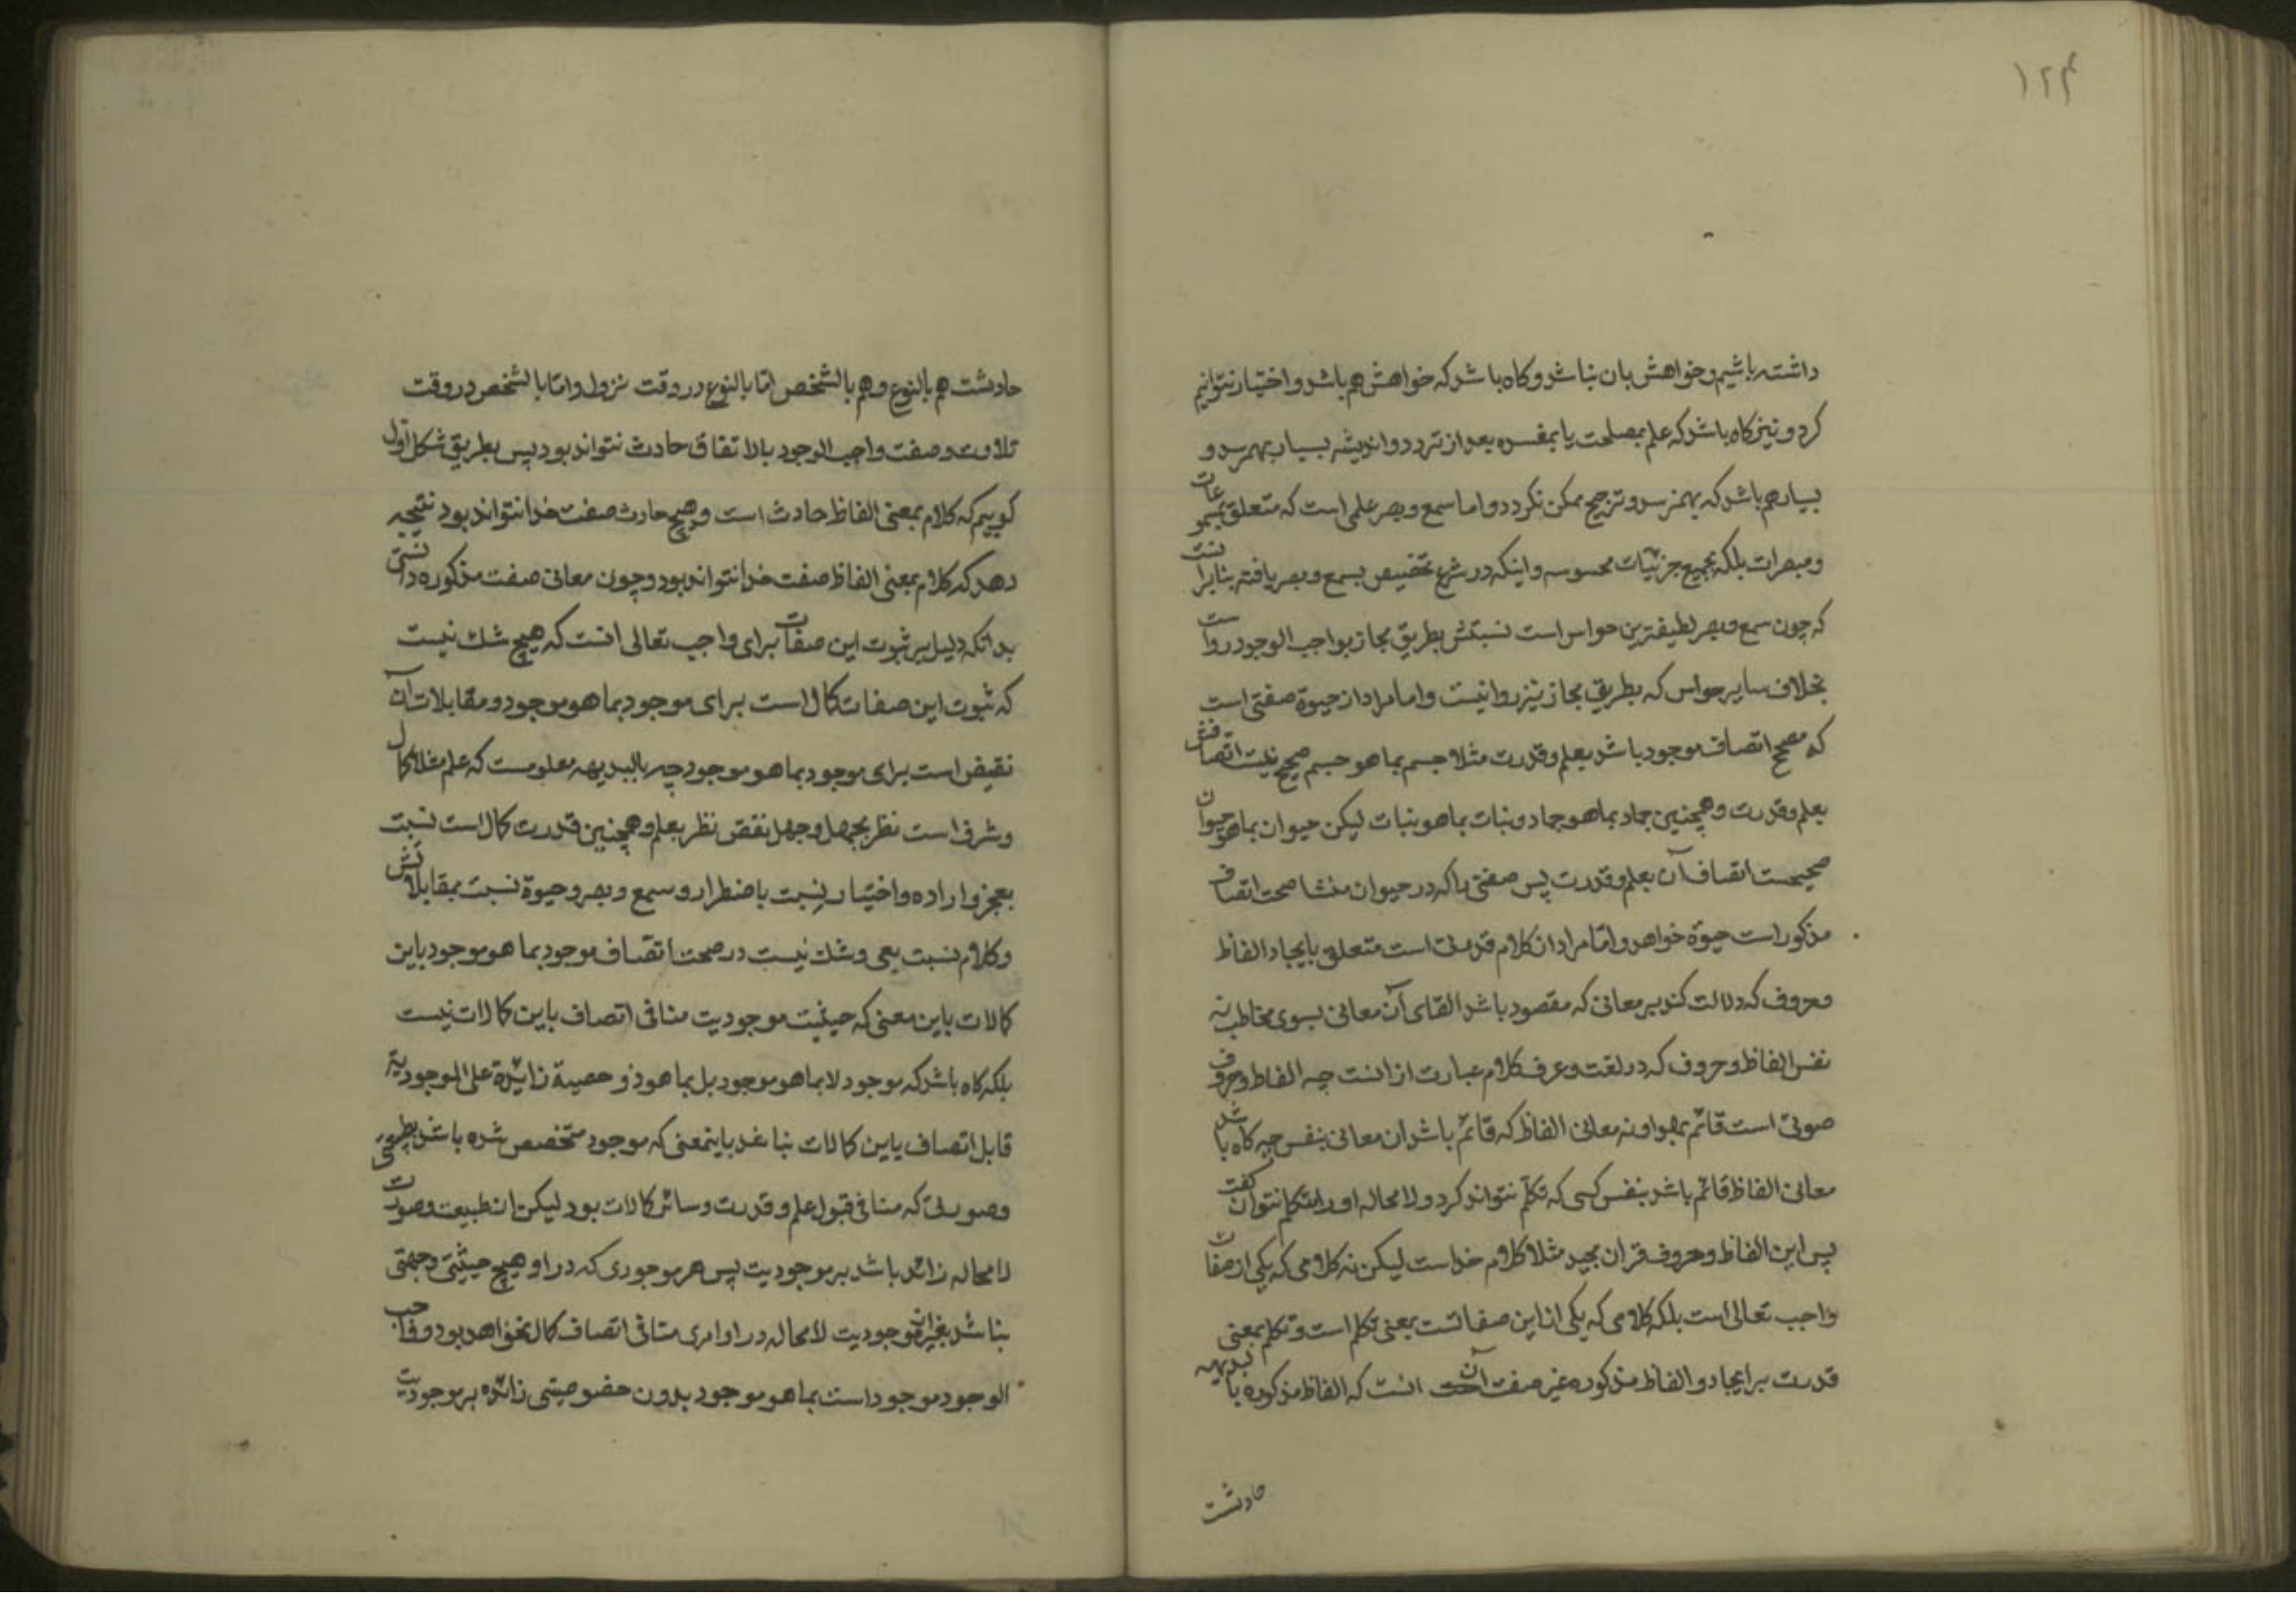 ۱۲۴
داشته باشیم و خواهش بان نباشد و کاه باشد که خواهش هم باشد و اختیار نتوانیم
کرد و نیز کاه باشد که علم بمصلحت یا بمفسده بعد از تردد و اندیشه بسیار بهمرسد و
بسیار هم باشد که بهمنرسد و ترجیح ممکن نکردد و اما سمع و بصر علمی است که متعلق بمسموعات
و مبصرات بلکه بجمیع جزئیات محسوسه و اینکه در شرع تخصیص بسمع و بصر یافته بنابرانست
که چون سمع و بصر لطیفترین حواس است نسبتش بطریق مجاز بواجب الوجود رواست
بخلاف سایر حواس که بطریق مجاز نیز روا نیست و اما مراد از حیوة صفتی است
که مصحح اتصاف موجود باشد بعلم و قدرت مثلا جسم بما هو جسم صحیح نیست اتصافش
بعلم و قدرت و همچنین جماد بما هو جماد و نبات بما هو نبات لیکن حیوان بما هو حیوان
صحیحست اتصاف آن بعلم و قدرت پس صفتی را که در حیوان منشا صحت اتصاف
مذکور است حیوة خواهد و امّا مراد از کلام قدرتی است متعلق بایجاد الفاظ
و حروف که دلالت کند بر معانی که مقصود باشد القای آن معانی بسوی مخاطب نه
نفس الفاظ و حروف که در لغت و عرف کلام عبارت از انست چه الفاظ و حروف
صوتی است قائم بهوا و نه معانی الفاظ که قائم باشد ان معانی بنفس چه کاه باشد
معانی الفاظ قائم باشد بنفس کسی که تکلّم نتواند کرد و لا محاله او را متکلم نتوان کفت
پس این الفاظ و حروف قران مجید مثلا کلام خداست لیکن نه کلامی که یکی از صفات
واجب تعالی است بلکه کلامی که یکی از این صفاتست بمعنی تکلم است و تکلم بمعنی
قدرت بر ایجاد و الفاظ مذکوره غیر صفت آن انست که الفاظ مذکوره بابدیهه
حادثست
حادثست هم بالنوع و هم بالشخص امّا بالنوع در وقت نزول و امّا بالشخص در وقت
تلاوت و صفت واجب الوجود بالاتفاق حادث نتواند بود پس بطریق شکل اوّل
کوییم که کلام بمعنی الفاظ حادث است و هیچ حادث صفت خدا نتواند بود نتیجه
دهد که کلام بمعنی الفاظ صفت خدا نتواند بود و چون معانی صفت مذکوره دانستی
بدانکه دلیل بر ثبوت این صفات برای واجب تعالی انست که هیچ شک نیست
که ثبوت این صفات کمال است برای موجود بما هو موجود و مقابلات آن
نقیض است برای موجود بما هو موجود چه بالبدیهه معلومست که علم مثلا کمال
و شرف است نظر بجهل و جهل نقص نظر بعلم و همچنین قدرت کمال است نسبت
بعجز و اراده و اختیار نسبت باضطرار و سمع و بصر و حیوة نسبت بمقابلاتش
و کلام نسبت بعی و شک نیست در صحت اتصاف موجود بما هو موجود باین
کمالات باین معنی که حیثیت موجودیت منافی اتصاف باین کمالات نیست
بلکه کاه باشد که موجود لا بما هو موجود بل بما هو ذو حصیة زائدة علی الموجودیة
قابل اتصاف باین کمالات نباشد باینمعنی که موجود متخصص شده باشد بطبیعتی
و صورتی که منافی قبول علم و قدرت و سائر کمالات بود لیکن ان طبیعت و صورت
لا محاله زائد باشد بر موجودیت پس هر موجودی که در او هیچ حیثیتی و جهتی
نباشد بغیر از موجودیت لا محاله در او امری منافی اتصاف کمال نخواهد بود و واجب
الوجود موجود است بما هو موجود بدون خصوصیتی زائده بر موجودیت